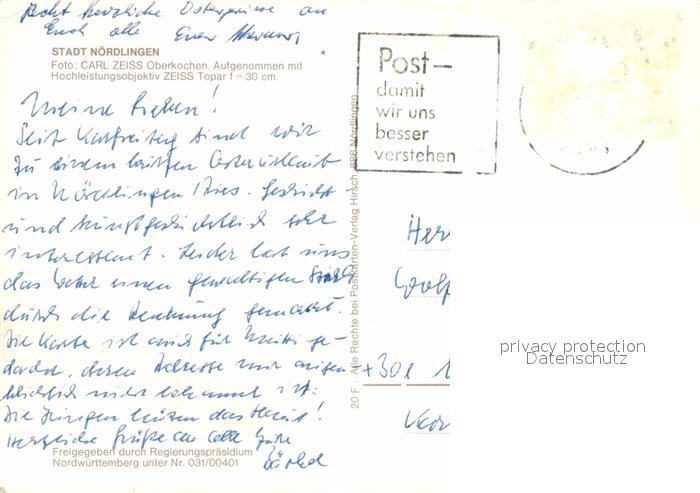 Recht herzliche Ostergrüsse an
Euch alle Euer
STADT NÖRDLINGEN
Foto: CARL ZEISS Oberkochen. Aufgenommen mit
Hochleistungsobjektiv ZEISS Topar f = 30 cm.
Meine Lieben!
Seit Karfreitag sind wir
zu einem kurzen Osterurlaub
in Nördlingen / Ries. Geschicht-
und kunstgeschichtlich sehr
interessant. Leider hat uns
das Wetter einen gewaltigen Strich
durch die Rechnung gemacht.
Die Karte ist auch für Mutti ge-
dacht, deren Adresse mir augen-
blicklich nicht bekannt ist.
Die Jungen hüten das Haus!
Herzliche Grüße an alle Eure
Bärbel
Freigegeben durch Regierungspräsidium
Nordwürttemberg unter Nr. 031/00401
20 F. Alle Rechte bei Postkarten-Verlag Hirsch, 886 Nördlingen
Post –
damit
wir uns
besser
verstehen
Her
Wolf
privacy protection
Datenschutz